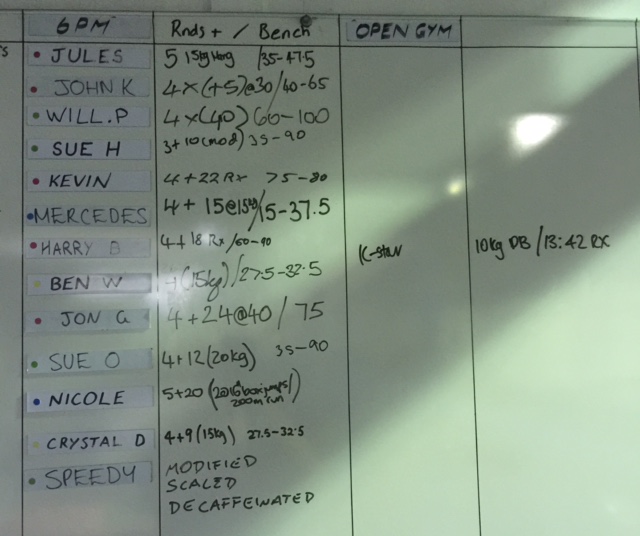 6PM Rnds + / Bench OPEN GYM
s
JULES 5 15kg /35-47.5
JOHN K 4x(+5)@30/40-65
WILL.P 4x(40) 60-100
SUE H 3+10(mod) 35-90
KEVIN 4+22 Rx 75-80
MERCEDES 4+ 15@15kg/15-37.5
HARRY B 4+18 Rx /60-90 K-Star 10kg DB/13:42 RX
BEN W (15kg)/27.5-32.5
JON G 4+24@40/75
SUE O 4+12(20kg) 35-90
NICOLE 5+20 (20@16 box jumps/)
200m run
CRYSTAL D 4+9(15kg) 27.5-32.5
SPEEDY MODIFIED
SCALED
DECAFFEINATED